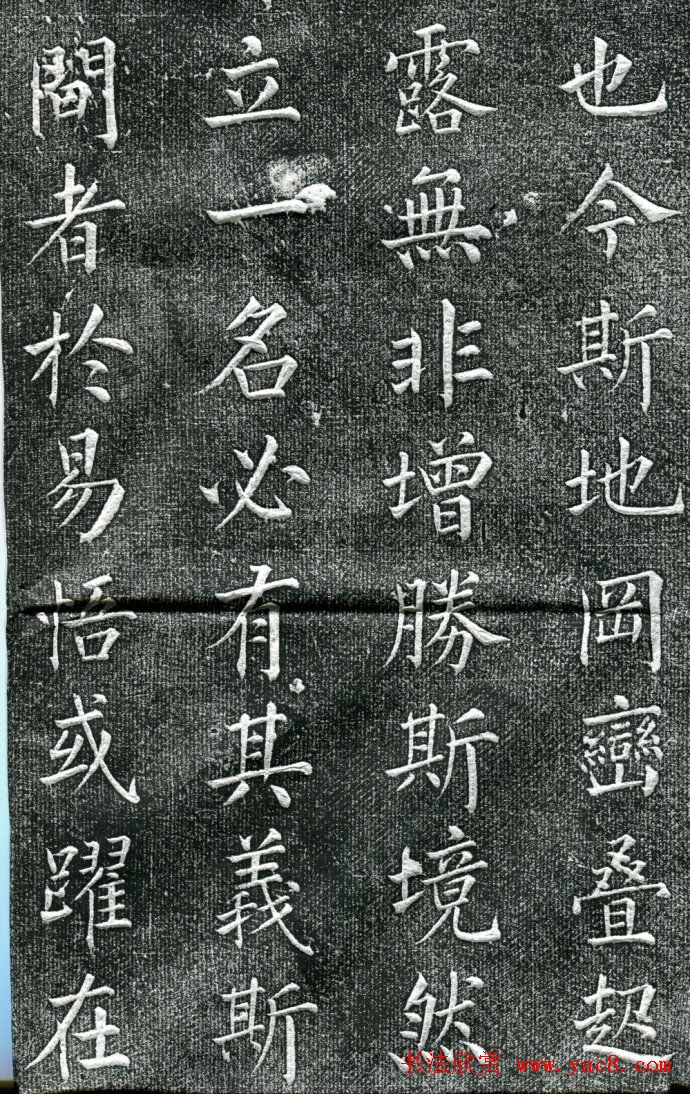 也今斯地岡巒叠起
露無非增勝斯境然
立一名必有其義斯
閱者於易悟或躍在
书法欣赏 www.yac8.com